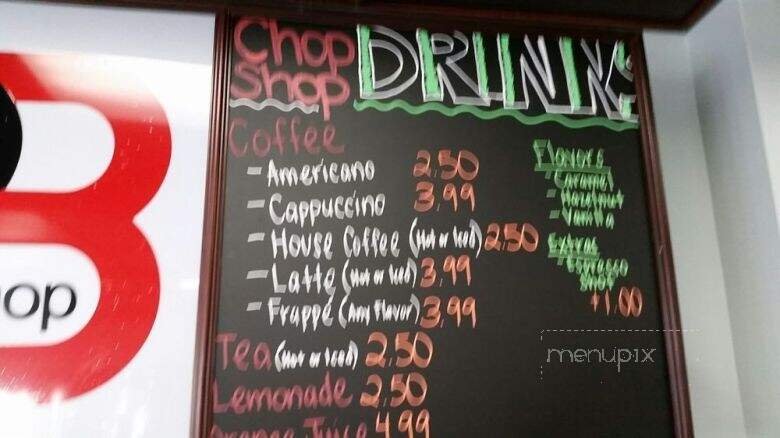 Chop
Shop
DRINKS
Coffee
- Americano 2.50
- Cappuccino 3.99
- House Coffee (Hot or Iced) 2.50
- Latte (Hot or Iced) 3.99
- Frappé (Any Flavor) 3.99
Tea (Hot or Iced) 2.50
Lemonade 2.50
Orange Juice 4.99
Flavors
- Caramel
- Hazelnut
- Vanilla
Extras
- Espresso
Shot
+1.00
op
menupix